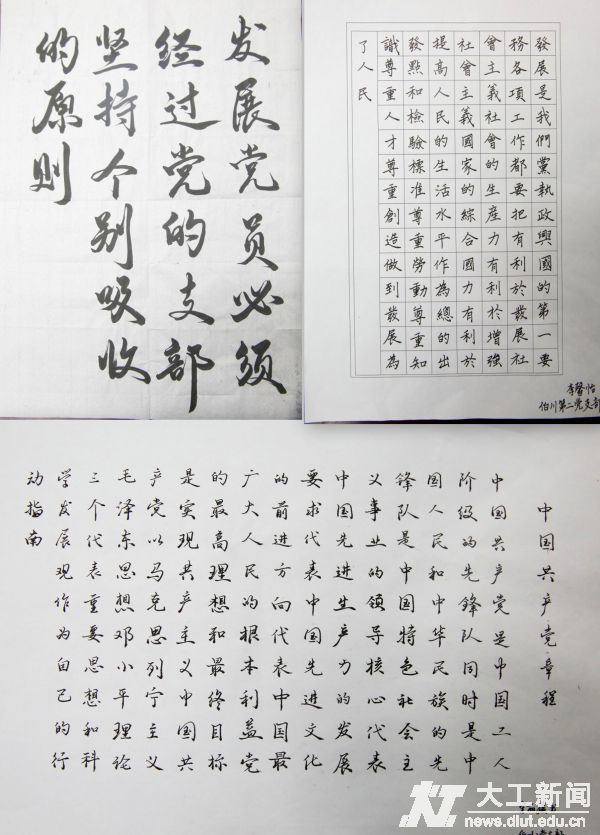 发展党员必须
经过党的支部
坚持个别吸收
的原则
發展是我們黨執政興國的第一要
務各項工作都要把有利於發展社
會主義社會的生產力有利於增強
社會主義國家的綜合國力有利於
提高人民的生活水平作為總的出
發點和檢驗標准尊重勞動尊重知
識尊重人才尊重創造做到發展為
了人民
李馨怡
伯川第二党支部
中国共产党章程
中国共产党是中国工人
阶级的先锋队同时是中
国人民和中华民族的先
锋队是中国特色社会主
义事业的领导核心代表
中国先进生产力的发展
要求代表中国先进文化
的前进方向代表中国最
广大人民的根本利益党
的最高理想和最终目标
是实现共产主义中国共
产党以马克思列宁主义
毛泽东思想邓小平理论
三个代表重要思想和科
学发展观作为自己的行
动指南
大工新闻
www.news.dlut.edu.cn